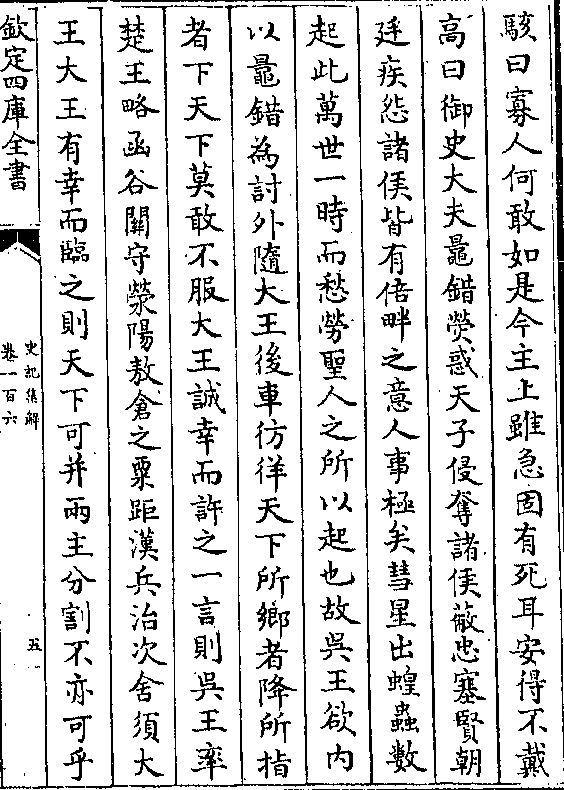 駭曰寡人何敢如是今主上雖急固有死耳安得不戴
高曰御史大夫鼂錯熒惑天子侵奪諸侯蔽忠塞賢朝
廷疾怨諸侯皆有倍畔之意人事極矣彗星出蝗蟲數
起此萬世一時而愁勞聖人之所以起也故吳王欲内
以鼂錯為討外隨大王後車彷徉天下所鄉者降所指
者下天下莫敢不服大王誠幸而許之一言則吳王率
楚王略函谷關守滎陽敖倉之粟距漢兵治次舍須大
王大王有幸而臨之則天下可并兩主分割不亦可乎
欽定四庫全書
史記集解
卷一百六
五